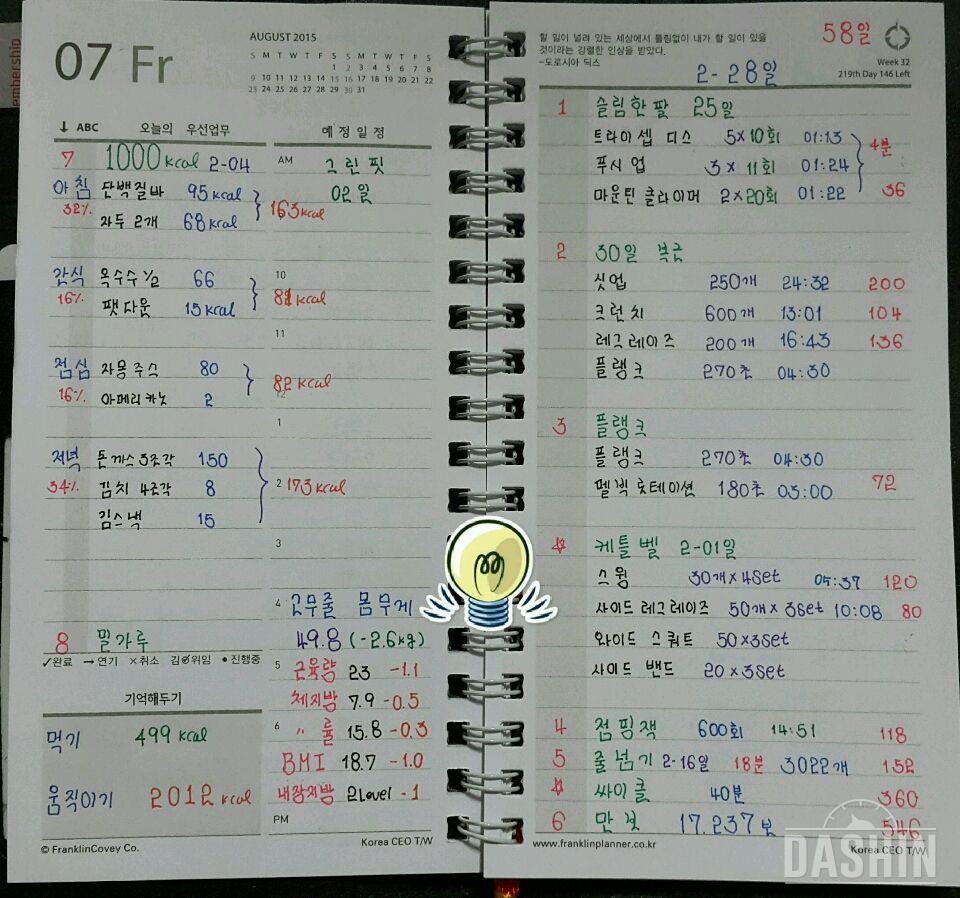 embership
07 Fr
AUGUST 2015
S M T W T F S S M T W T F S
1 2 3 4 5 6 7 8
9 10 11 12 13 14 15 16 17 18 19 20 21 22
23 24 25 26 27 28 29 30 31
↓ ABC 오늘의 우선업무
7 1000 kcal 2-04
아침 단백질바 95 kcal
32% 자두 2개 68 kcal
간식 옥수수 1/2 66
16% 팻다운 15 kcal
점심 자몽주스 80
16% 아메리카노 2
저녁 돈까스 3조각 150
34% 김치 4조각 8
김스낵 15
8 밀가루
✓완료 →연기 ×취소 김∅위임 •진행중
기억해두기
먹기 499 kcal
움직이기 2012 kcal
© FranklinCovey Co.
예정일정
AM 그린핏
02일
163 kcal
10
81 kcal
11
82 kcal
12
1
2 173 kcal
3
4 고무줄 몸무게
49.8 (-2.6kg)
5 근육량 23 -1.1
체지방 7.9 -0.5
6 〃 률 15.8 -0.3
BMI 18.7 -1.0
내장지방 2Level -1
PM
Korea CEO T/W
할 일이 널려 있는 세상에서 틀림없이 내가 할 일이 있을
것이라는 강렬한 인상을 받았다.
-도로시아 딕스
58일
Week 32
219th Day 146 Left
2-28일
1 슬림한팔 25일
트라이셉 디스 5×10회 01:13
4분
푸시업 3×11회 01:24
마운틴 클라이머 2×20회 01:22 36
2 30일 복근
싯업 250개 24:32 200
크런치 600개 13:01 104
레그레이즈 200개 16:43 136
플랭크 270초 04:30
3 플랭크
플랭크 270초 04:30
펠빅 롯테이션 180초 03:00 72
☆ 케틀벨 2-01일
스윙 30개×4set 05:37 120
사이드 레그레이즈 50개×3set 10:08 80
와이드 스쿼트 50×3set
사이드 밴드 20×3set
4 점핑잭 600회 14:51 118
5 줄넘기 2-16일 18분 3022개 152
☆ 싸이클 40분 360
6 만보 17.237보 546
www.franklinplanner.co.kr
Korea CEO T/W
DASHIN